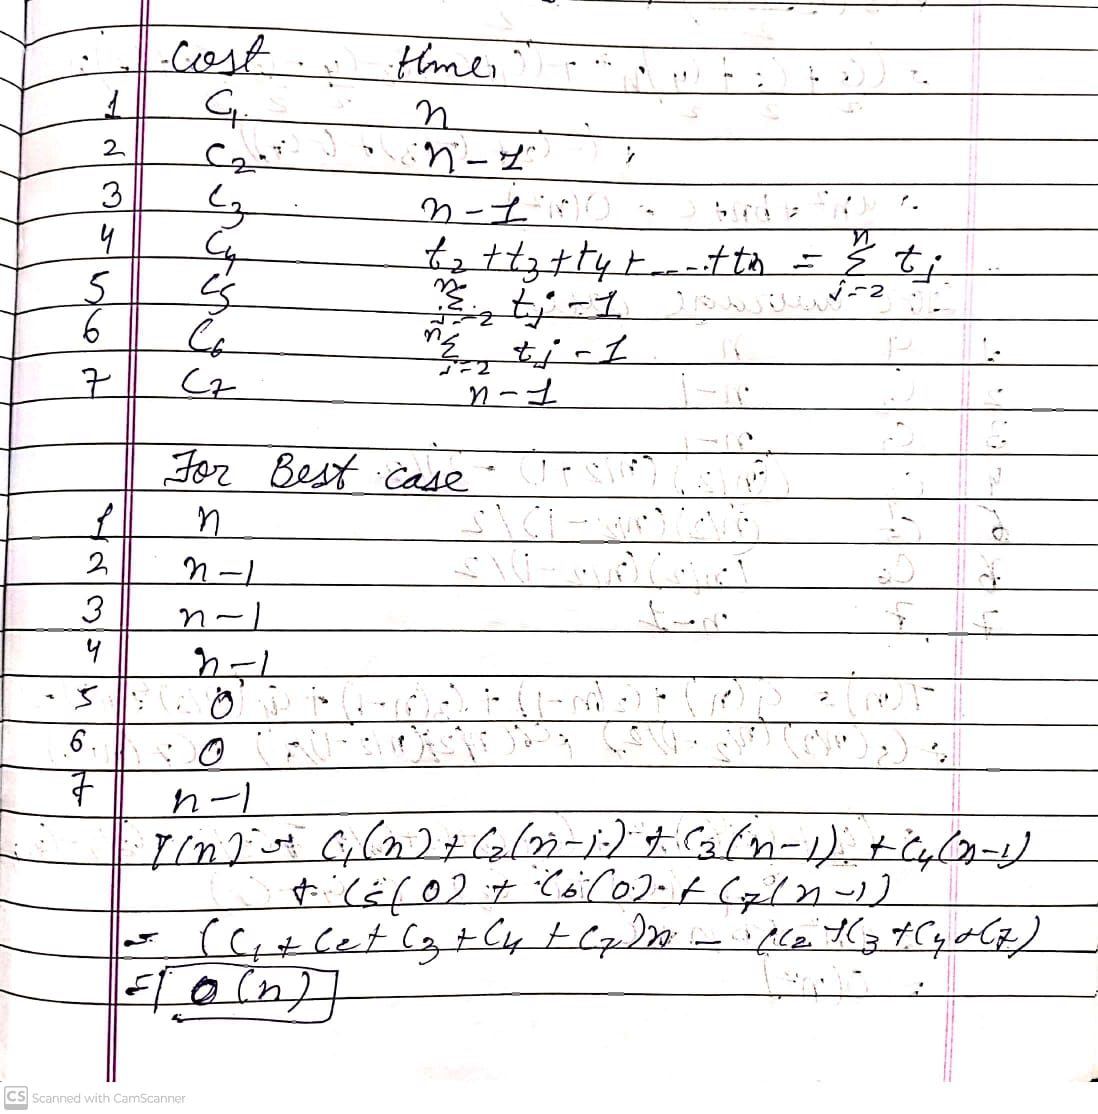 Cost time
1 C1 n
2 C2 n-1
3 C3 n-1
4 C4 t2+t3+t4+----+tn = n Σ j=2 tj
5 C5 n Σ j=2 tj-1
6 C6 n Σ j=2 tj-1
7 C7 n-1
For Best case
1 n
2 n-1
3 n-1
4 n-1
5 0
6 0
7 n-1
T(n) = C1(n)+C2(n-1)+C3(n-1)+C4(n-1)
+C5(0)+C6(0)+C7(n-1)
= (C1+C2+C3+C4+C7)n - (C2+C3+C4+C7)
= O(n)
CS Scanned with CamScanner